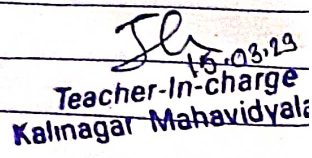 15.03.29
Teacher-In-charge
Kalinagar Mahavidyala